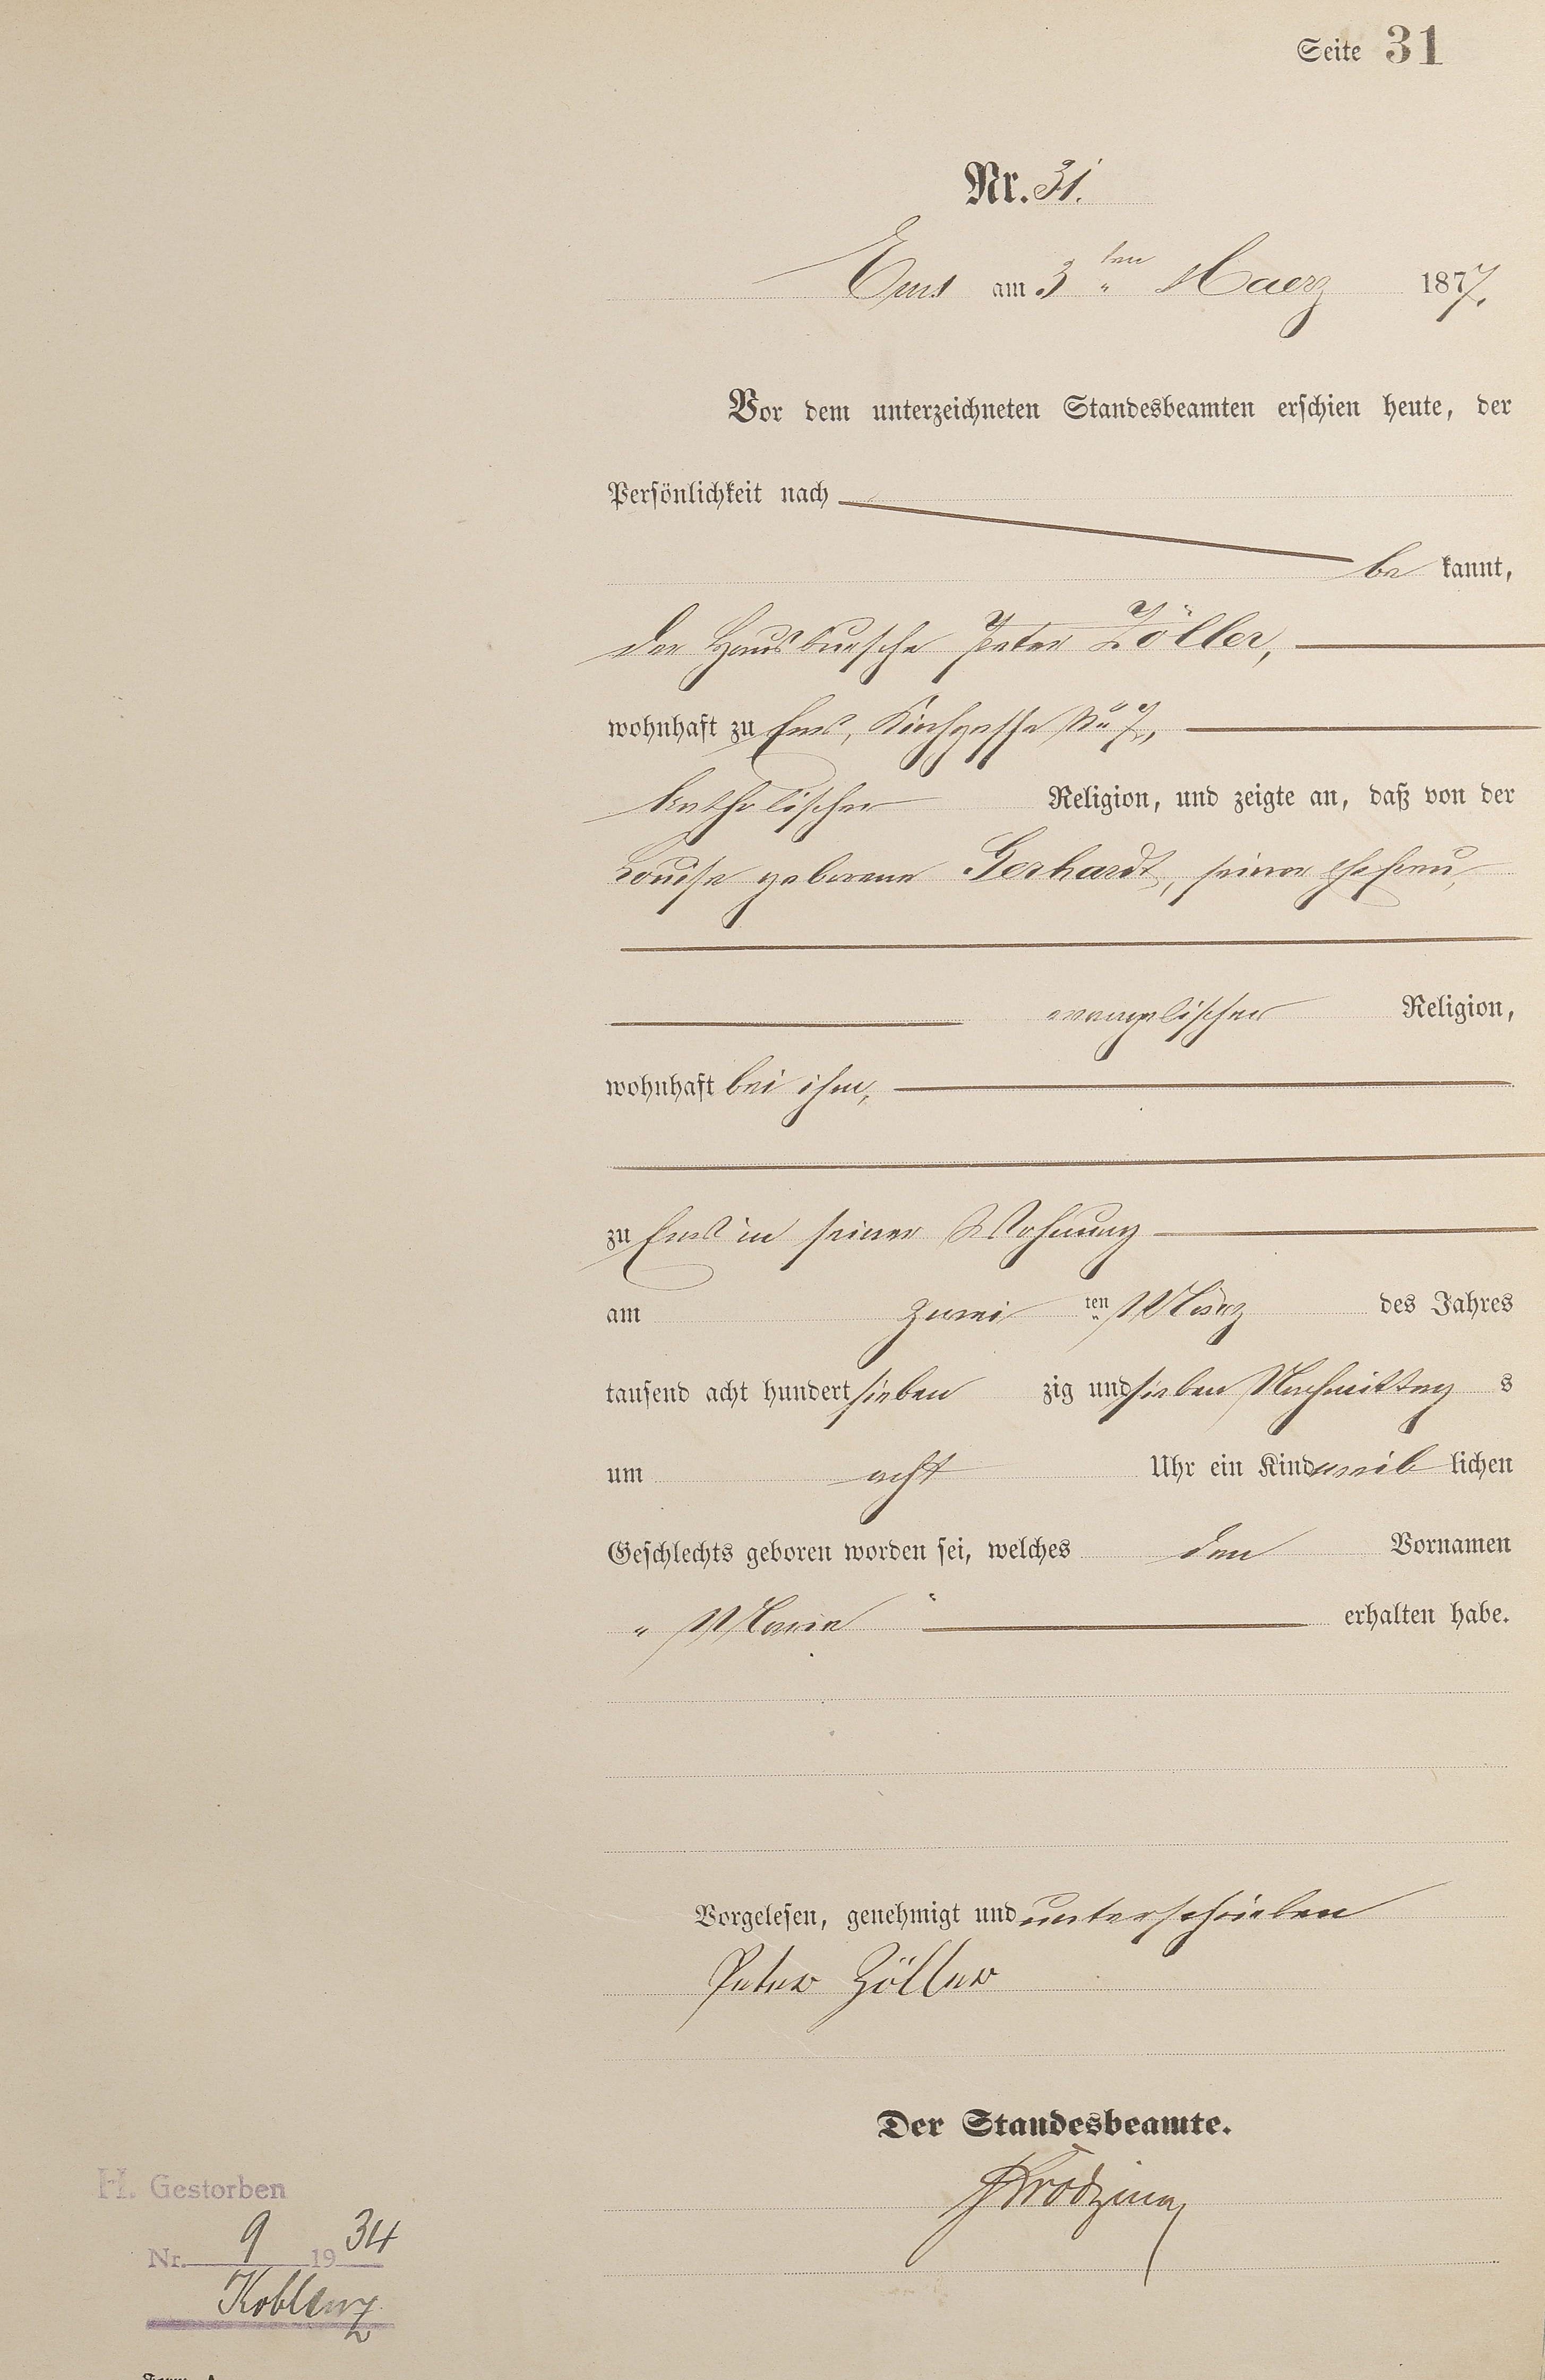 Seite 31
Nr. 31.
Ems am 3ten Maerz 1877.
Vor dem unterzeichneten Standesbeamten erschien heute, der
Persönlichkeit nach
be kannt,
der Hausbursche Peter Zöller,
wohnhaft zu Ems, Kirchgasse No 7,
katholischer Religion, und zeigte an, daß von der
Louise geborene Gerhardt, seiner Ehefrau,
evangelischer Religion,
wohnhaft bei ihm,
zu Ems in seiner Wohnung
am zwei ten März des Jahres
tausend acht hundert sieben zig und sieben Nachmittag s
um acht Uhr ein Kind weib lichen
Geschlechts geboren worden sei, welches den Vornamen
„ Maria “ erhalten habe.
Vorgelesen, genehmigt und unterschrieben
Peter Zöller
Der Standesbeamte.
H. Gestorben
Nr. 9 1934
Koblenz